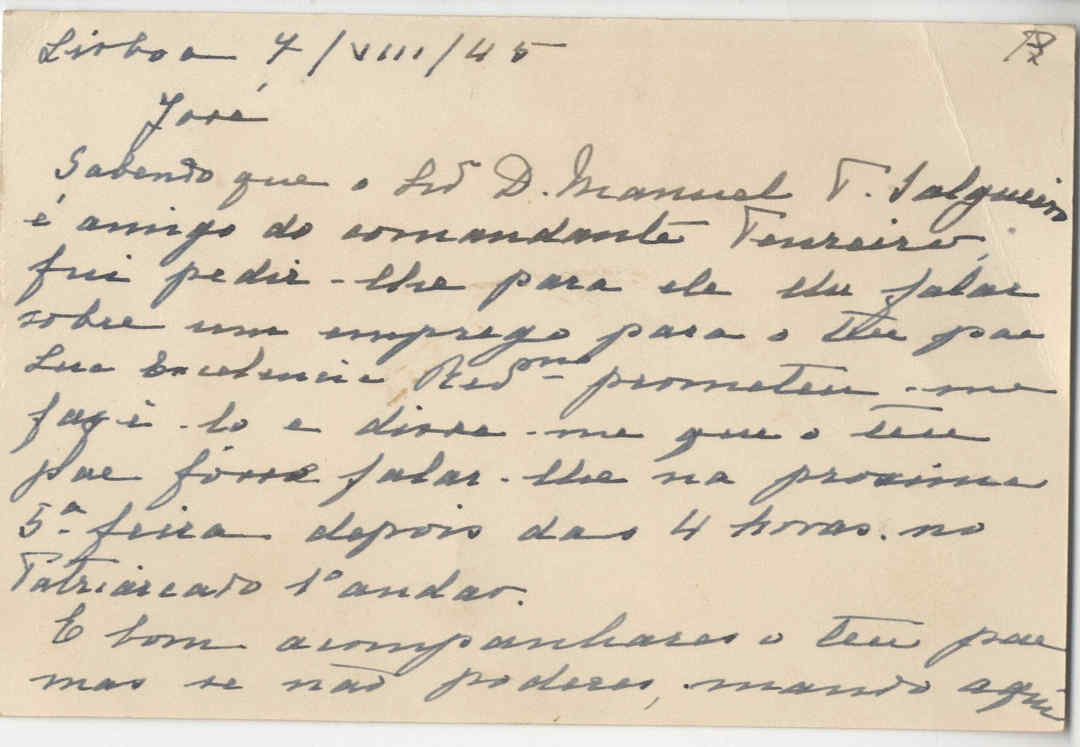 Lisboa 7/VIII/45
José
Sabendo que o Snr D. Manuel T. Salgueiro
é amigo do comandante Tenreiro,
fui pedir-lhe para ele lhe falar
sobre um emprego para o teu pae
Sua Excelencia Revma prometeu-me
fazê-lo e disse-me que o teu
pae fôsse falar-lhe na proxima
5.ª feira depois das 4 horas no
Patriarcado 1º andar.
E bom acompanhares o teu pae
mas se não poderes, mando aqui